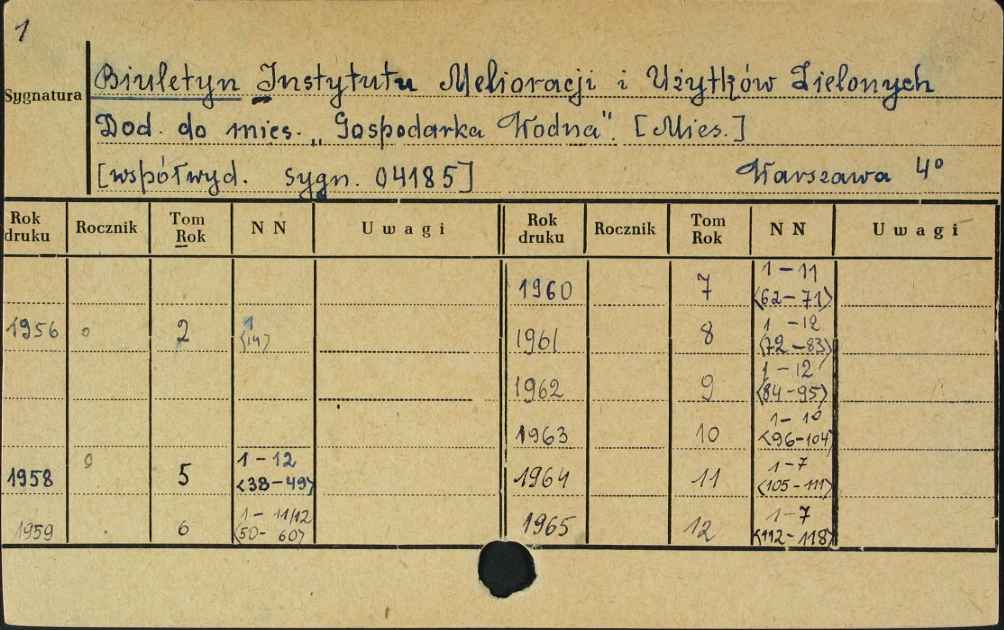 1
Sygnatura
Biuletyn Instytutu Melioracji i Użytków Zielonych
Dod. do mies. „Gospodarka Wodna". [Mies.]
[współwyd. sygn. 04185] Warszawa 4º
Rok druku Rocznik Tom Rok NN Uwagi Rok druku Rocznik Tom Rok NN Uwagi
1960 7 1-11 <62-71>
1956 o 2 1 <14> 1961 8 1-12 <72-83>
1962 9 1-12 <84-95>
1963 10 1-10 <96-104>
1958 o 5 1-12 <38-49> 1964 11 1-7 <105-111>
1959 6 1-11/12 <50-60> 1965 12 1-7 <112-118>